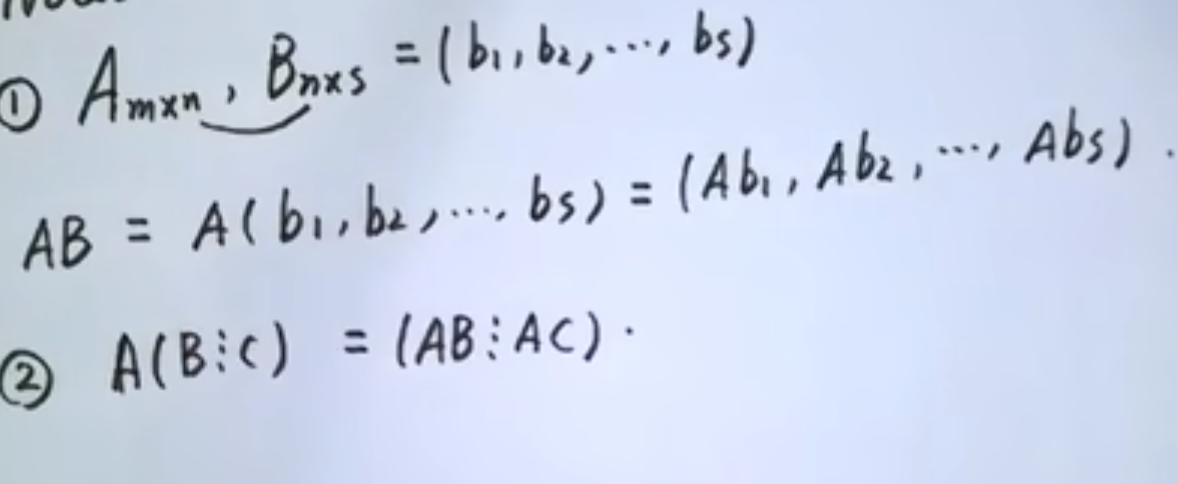 ① Aₘₓₙ, Bₙₓₛ = (b₁, b₂, ..., bₛ)
AB = A(b₁, b₂, ..., bₛ) = (Ab₁, Ab₂, ..., Abₛ).
② A(B⋮C) = (AB⋮AC).